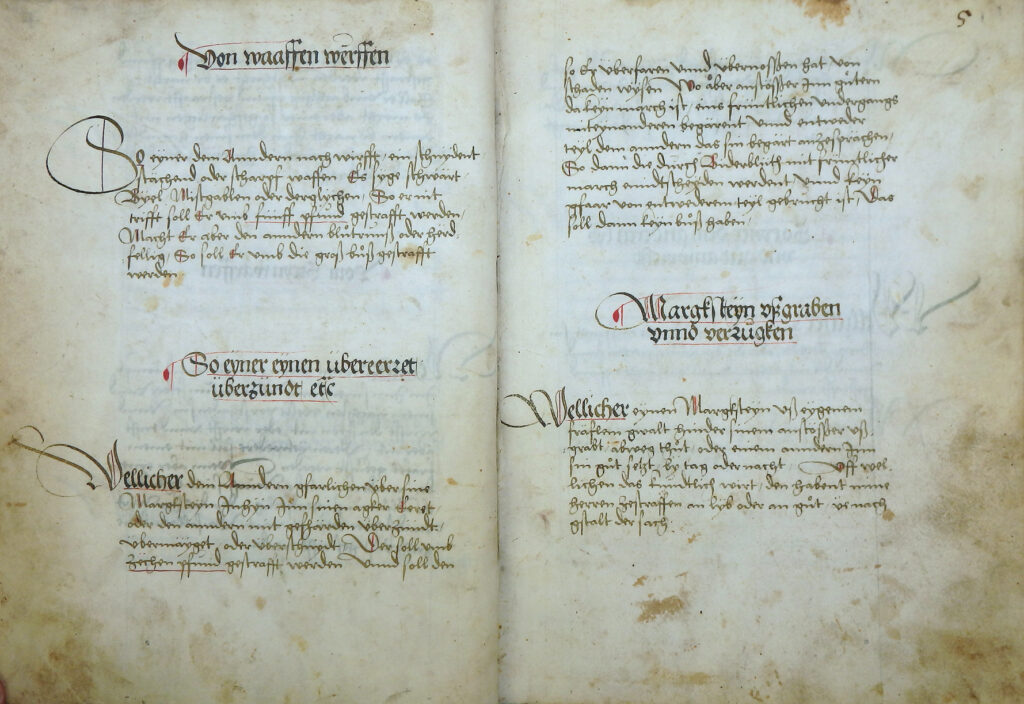 Von waaffen werffen
So eyner dem Anndern nach wirfft, ein schnydent
stächend oder scharpff waffen Es syge schwärt
Byel Mistgablen oder derglychen, So er nit
trifft soll Er vmb fünff pfund gestrafft werden,
Macht Er aber den anndern blůtrunß oder herd
fellig, So soll Er vmb die groß bůß gestrafft
werden
So eyner eynen übereerret
überzündt etc
Wellicher dem Anndern gfarlichen über sine
Margksteyn Inhyn Jnn sinen agker Eeret,
oder den anndern mit gefhärden überzündt,
übermäyget oder überschnydt Der soll vmb
zechen pfund gestrafft werden Vnnd soll den
5
so Er überfaren vnnd übernossen hat von
schaden wysen Wo aber anstösser Jnn gůtern
da keyn march ist, eins früntlichen vndergangs
miteynanndern begärent Vnnd entweder
teyl dem anndern das sin begärt anzesprächen,
So dann die durch Biderblüth mit früntlicher
march enndtscheyden werdent Vnnd keyn
gfaar von entwederem teyl gebrucht ist, Das
soll dann keyn bůß haben,
Margksteyn vßgraben
vnnd verrugken
Wellicher eynen Margksteyn vß eygenem
fräflem gwalt hinder sinem anstösser vß
grabt, abweg thůt, oder einem anndern Jnn
sin gůt setzt, by tag oder nacht, Vff wel
lichen das kundtlich wirt, den habent mine
herren zestraffen an lyb oder an gůt, ye nach
gstalt der sach,